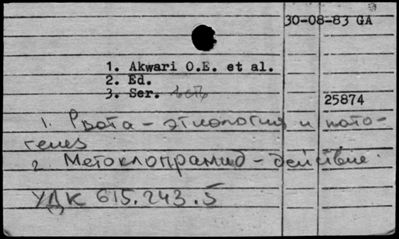 30-08-83 GA
1. Akwari O.E. et al.
2. Ed.
3. Ser. есть
25874
1. Рвота - этиология и пато-
генез
2. Метоклопрамид - действие.
УДК 615.243.5